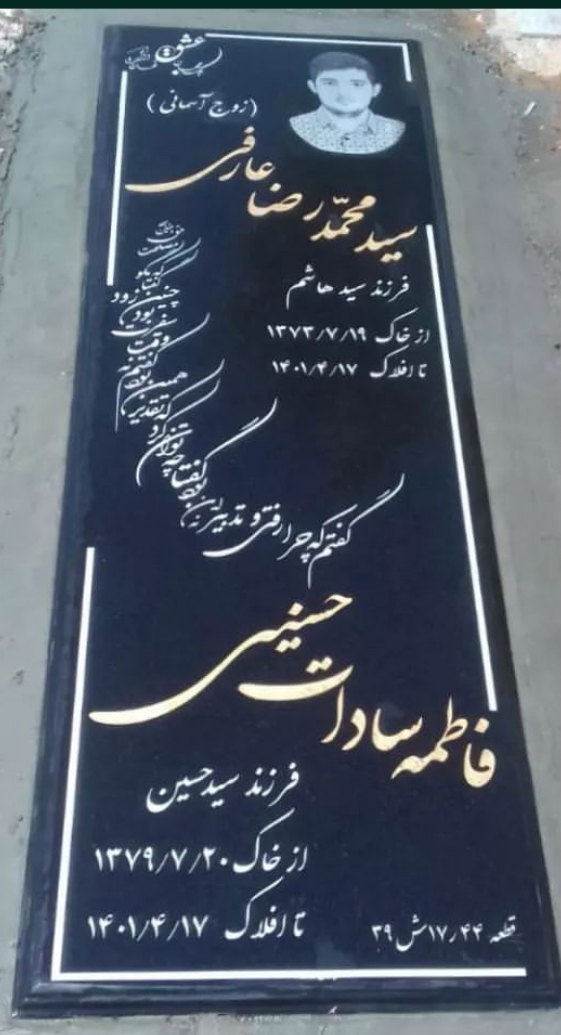 عشق
(زوج آسمانی)
سید محمّد رضا عارفی
فرزند سید هاشم
از خاک ۱۳۷۳/۷/۱۹
تا افلاک ۱۴۰۱/۴/۱۷
گفتم که چرا رفتی و تدبیر این بود
گفتا چه توان کرد که تقدیر همین بود
گفتم نه وقت سفرت بود چنین زود
گفتا که نگو مصلحت
فاطمه سادات حسینی
فرزند سید حسین
از خاک ۱۳۷۹/۷/۲۰
تا افلاک ۱۴۰۱/۴/۱۷
قطعه ۴۴ ر۱۷ش ۳۹